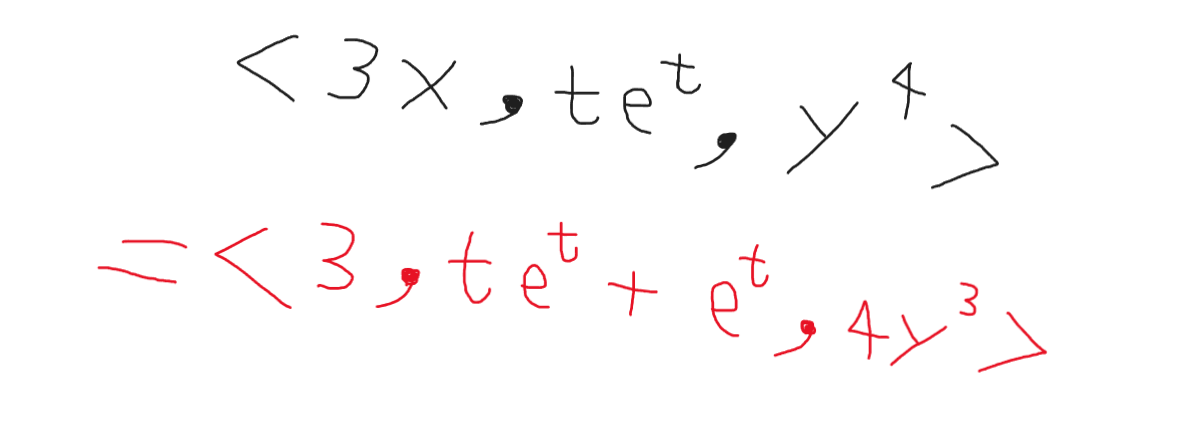 <3x, te^t, y^4>
=<3, te^t + e^t, 4y^3>